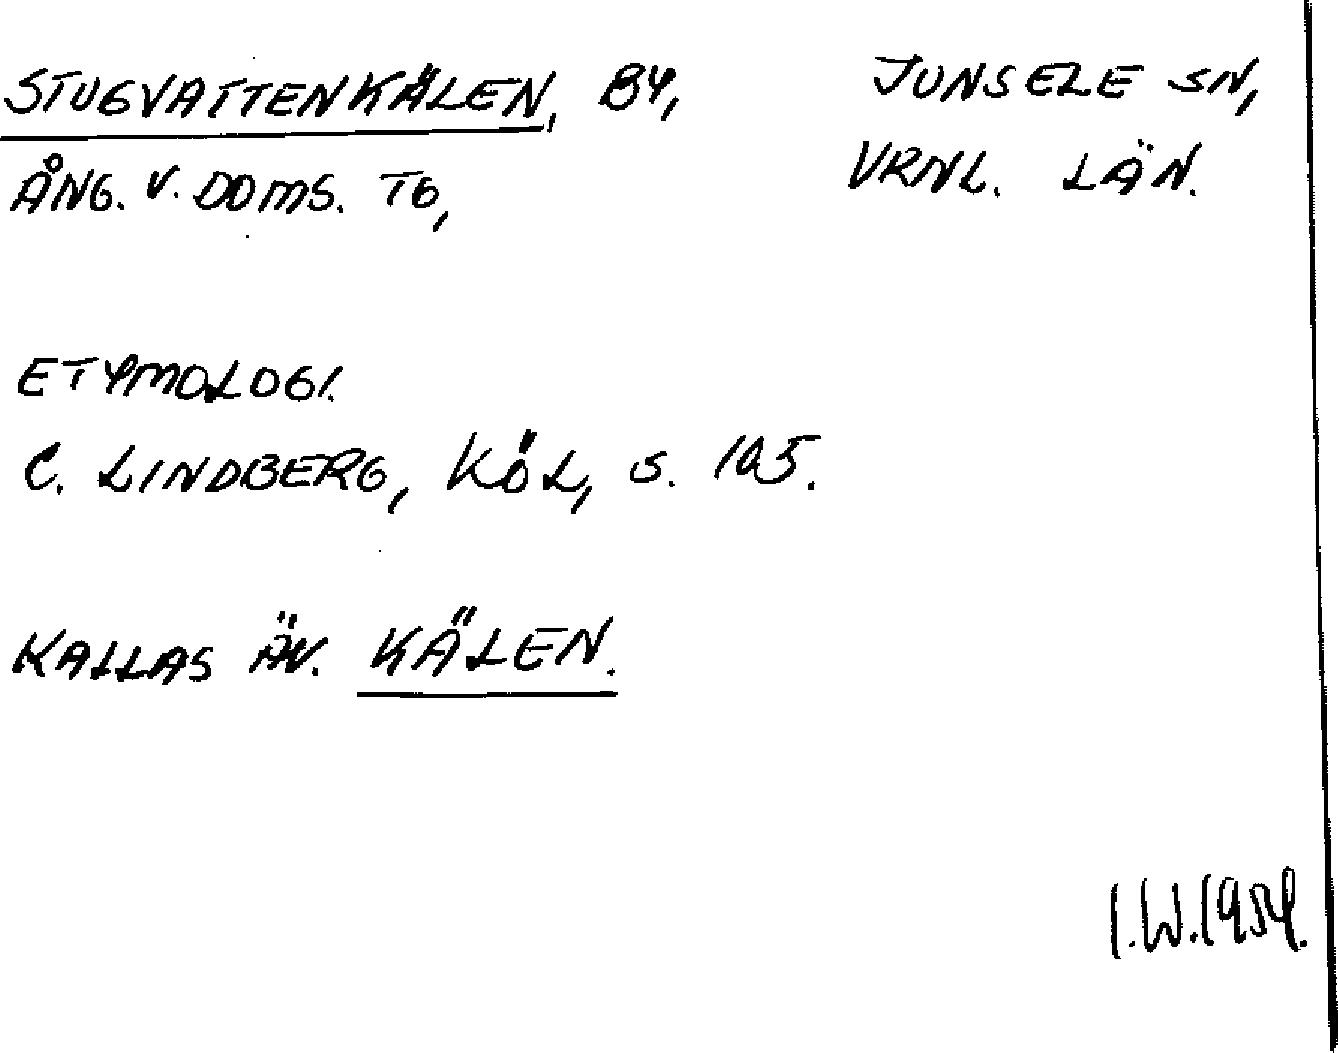 STUGVATTENKÄLEN, BY, JUNSELE SN,
ÅNG. V. DOMS. TG, VRNL. LÄN.
ETYMOLOGI.
C. LINDBERG, KÖL, S. 105.
KALLAS ÄV. KÄLEN.
I.W.1954.